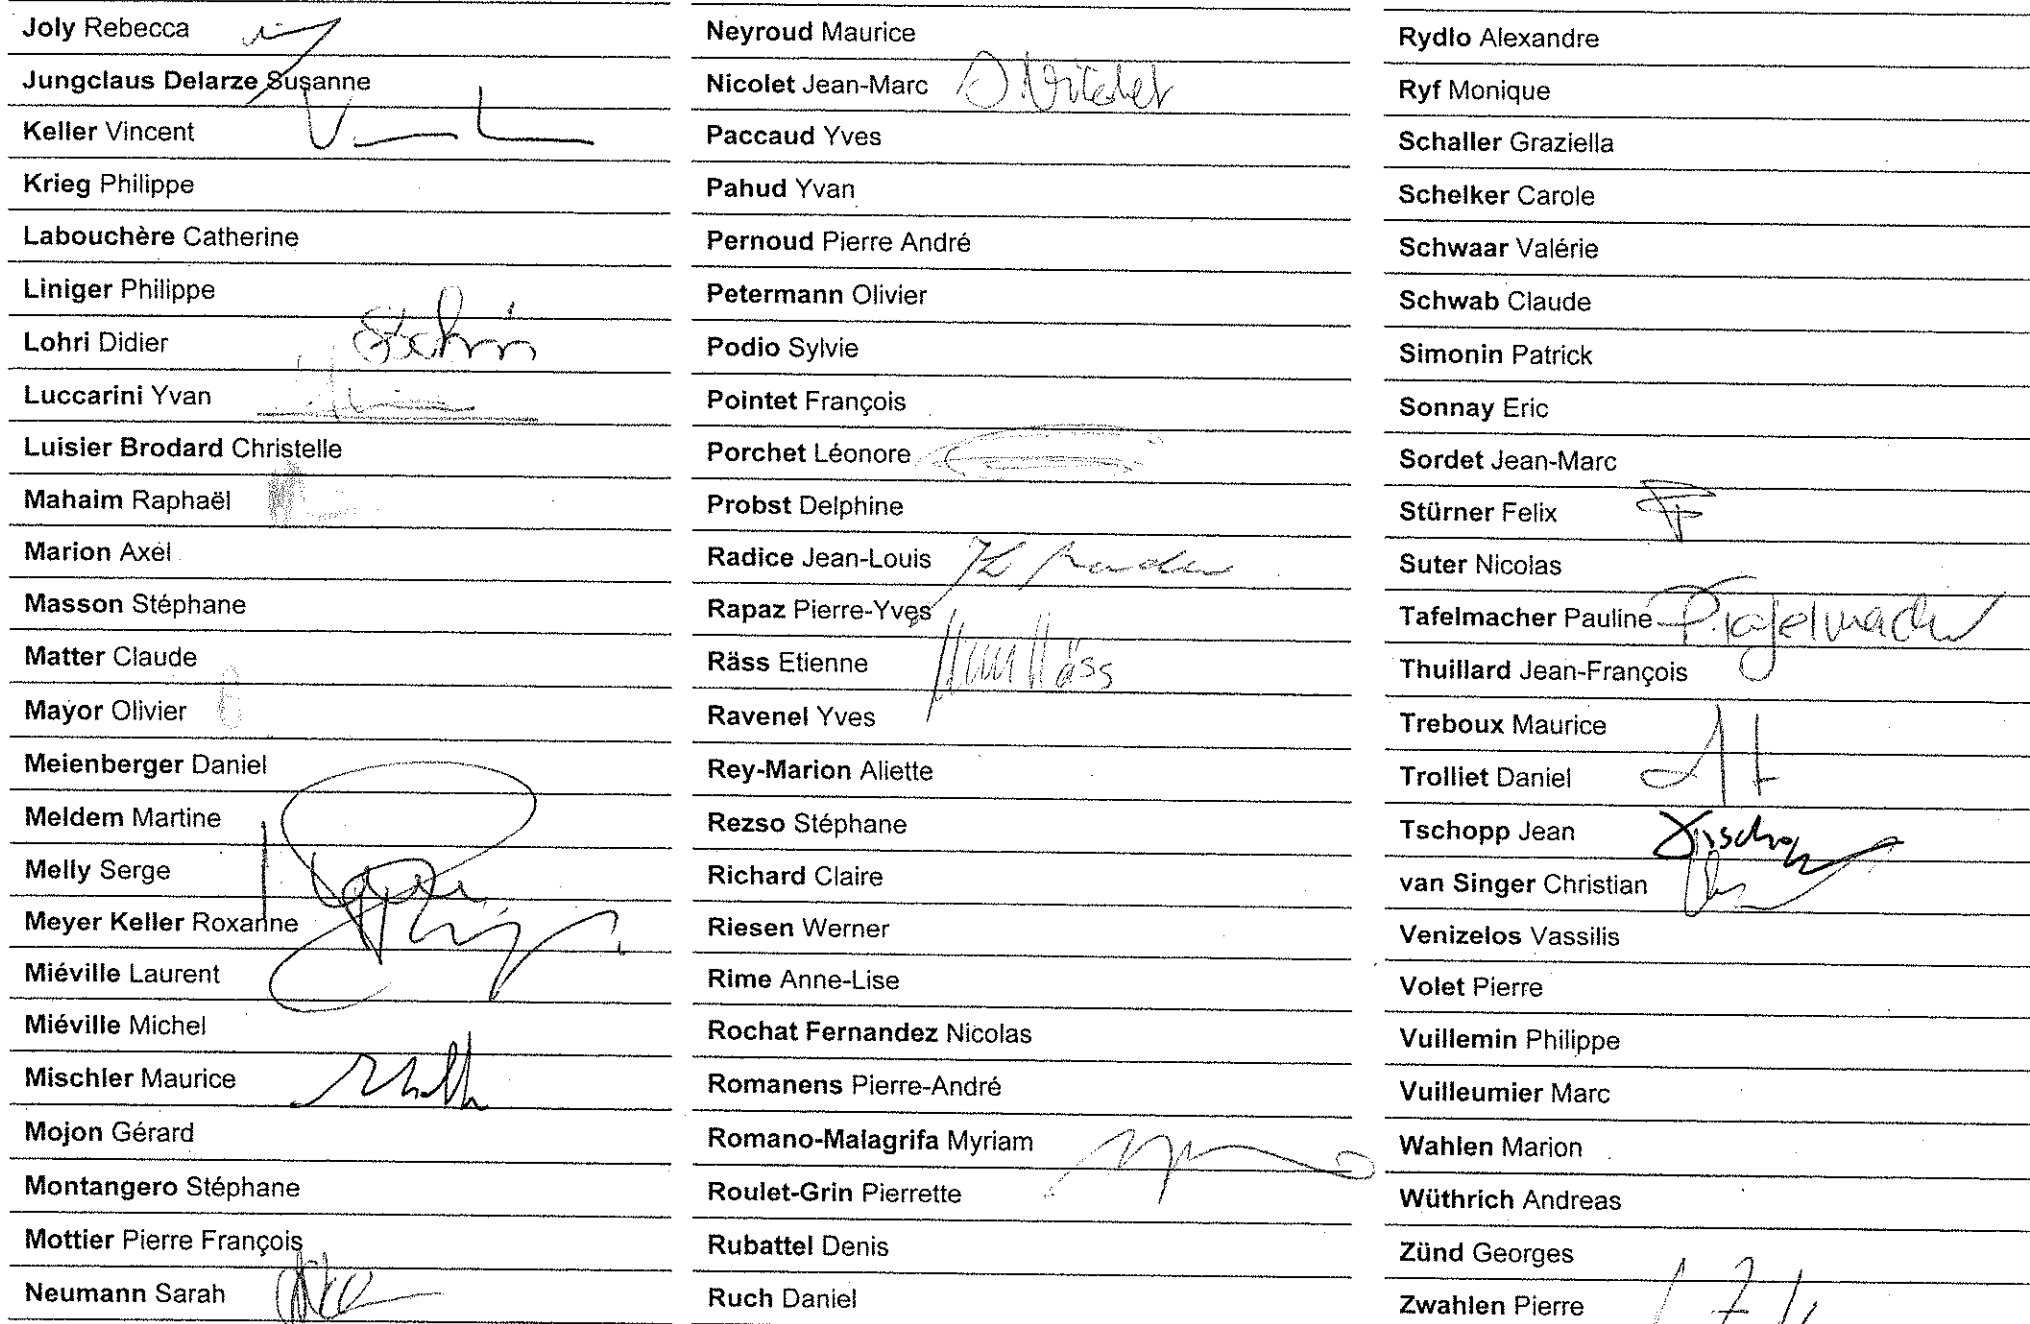 Joly Rebecca
Jungclaus Delarze Susanne
Keller Vincent
Krieg Philippe
Labouchère Catherine
Liniger Philippe
Lohri Didier
Luccarini Yvan
Luisier Brodard Christelle
Mahaim Raphaël
Marion Axel
Masson Stéphane
Matter Claude
Mayor Olivier
Meienberger Daniel
Meldem Martine
Melly Serge
Meyer Keller Roxanne
Miéville Laurent
Miéville Michel
Mischler Maurice
Mojon Gérard
Montangero Stéphane
Mottier Pierre François
Neumann Sarah
Neyroud Maurice
Nicolet Jean-Marc
Paccaud Yves
Pahud Yvan
Pernoud Pierre André
Petermann Olivier
Podio Sylvie
Pointet François
Porchet Léonore
Probst Delphine
Radice Jean-Louis
Rapaz Pierre-Yves
Räss Etienne Räss
Ravenel Yves
Rey-Marion Aliette
Rezso Stéphane
Richard Claire
Riesen Werner
Rime Anne-Lise
Rochat Fernandez Nicolas
Romanens Pierre-André
Romano-Malagrifa Myriam
Roulet-Grin Pierrette
Rubattel Denis
Ruch Daniel
Rydlo Alexandre
Ryf Monique
Schaller Graziella
Schelker Carole
Schwaar Valérie
Schwab Claude
Simonin Patrick
Sonnay Eric
Sordet Jean-Marc
Stürner Felix
Suter Nicolas
Tafelmacher Pauline P. Tafelmacher
Thuillard Jean-François
Treboux Maurice
Trolliet Daniel
Tschopp Jean
van Singer Christian
Venizelos Vassilis
Volet Pierre
Vuillemin Philippe
Vuilleumier Marc
Wahlen Marion
Wüthrich Andreas
Zünd Georges
Zwahlen Pierre